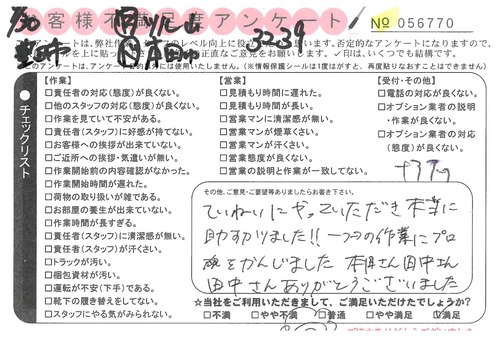 お客様不満足度アンケート
No 056770
7/30
3239
【作業】
□責任者の対応(態度)が良くない。
□他のスタッフの対応(態度)が良くない。
□作業を見ていて不安がある。
□責任者(スタッフ)に好感が持てない。
□お客様への挨拶が出来ていない。
□ご近所への挨拶・気遣いが無い。
□作業開始前の内容確認がなかった。
□作業開始時間が遅れた。
□荷物の取り扱いが雑である。
□お部屋の養生が出来ていない。
□作業時間が長すぎる。
□責任者(スタッフ)に清潔感が無い。
□責任者(スタッフ)が汗くさい。
□トラックが汚い。
□梱包資材が汚い。
□運転が不安(下手)である。
□靴下の履き替えをしてない。
□スタッフにやる気がみられない。
【営業】
□見積もり時間に遅れた。
□見積もり時間が長い。
□営業マンに清潔感が無い。
□営業マンが煙草くさい。
□営業マンが汗くさい。
□営業態度が良くない。
□営業の説明と作業が一致してない。
【受付・その他】
□電話の対応が良くない。
□オプション業者の説明
・作業が良くない。
□オプション業者の対応
(態度)が良くない。
チェックリスト
その他、ご意見・ご要望等ありましたらお書き下さい。
ていねいにやっていただき本当に
助すかりました!! 一つ一つの作業にプロ
魂をかんじました 本田さん田中さん
田中さんありがとうございました
☆当社をご利用いただきまして、ご満足いただけたでしょうか?
□不満 □やや不満 □普通 □やや満足 ☑満足